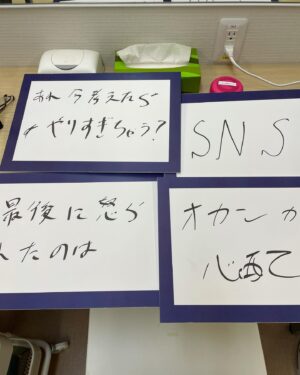 あれ今考えたら
やりすぎちゃう?
SNS
最後に怒ら
れたのは
オカン
心